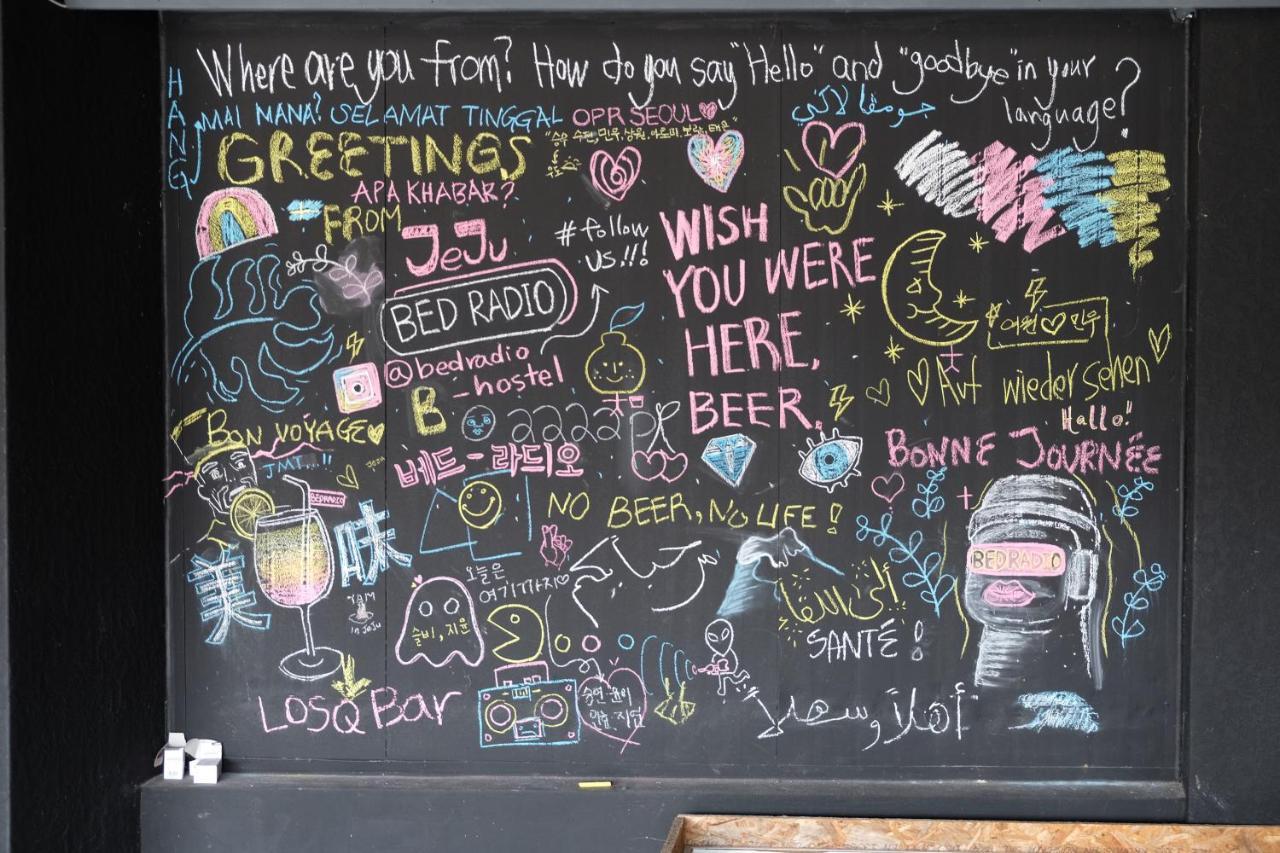 Where are you from? How do you say "Hello" and "goodbye" in your
language?
HANG
MAI MANA? SELAMAT TINGGAL
OPR SEOUL
GREETINGS
APA KHABAR?
FROM
JeJu
#follow
us!!!
BED RADIO
@bedradio
_hostel
B
WISH
YOU WERE
HERE,
BEER.
여원♡민우
Auf wiedersehen
Hallo!
BONNE JOURNÉE
BON VOYAGE
JMT...!!
BEDRADIO
aaaa
베드-라디오
NO BEER, NO LIFE!
美
味
오늘은
여기까지♡
YAM
in JeJu
슬비, 지윤
مرحبا
إلى اللقاء
SANTÉ!
BEDRADIO
LOSQ Bar
أهلاً وسهلاً